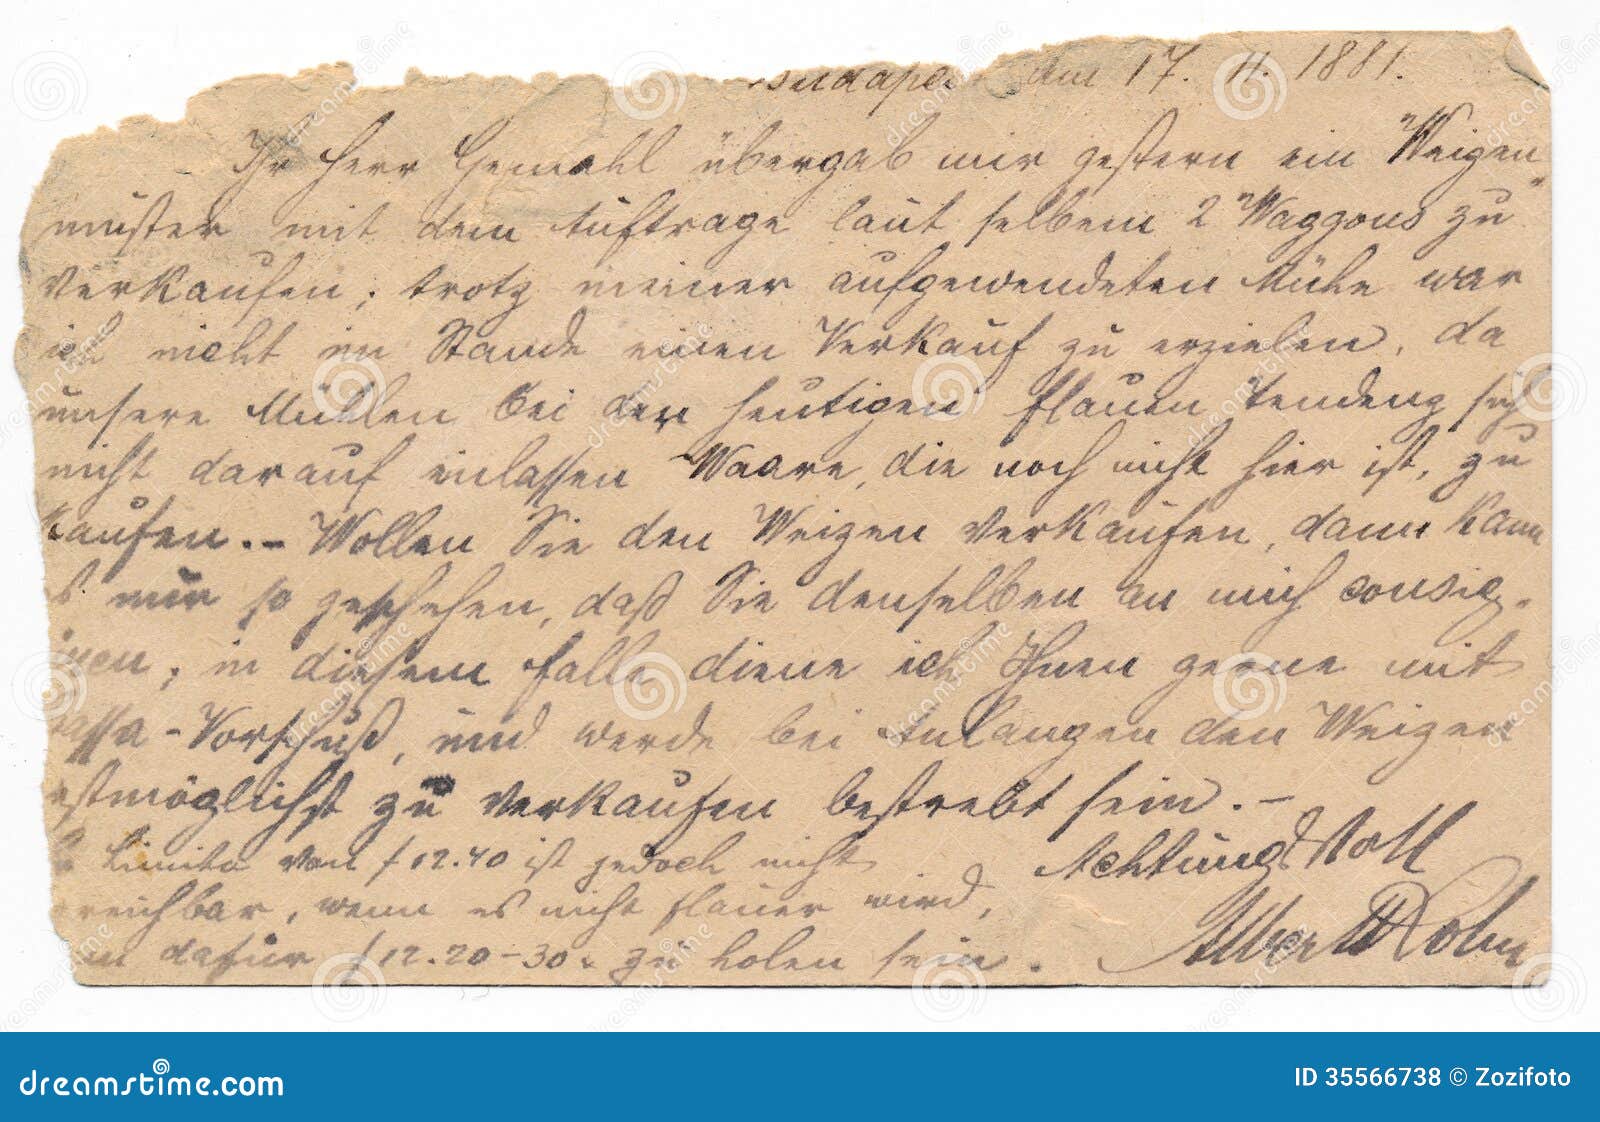 am 17. 11. 1881.
Ihr Herr Gemahl übergab mir gestern ein Weizen
muster mit dem Auftrage laut selbem 2 Waggons zu
verkaufen; trotz meiner aufgewendeten Mühe war
ich nicht im Stande einen Verkauf zu erzielen, da
unsere Mühlen bei der heutigen flauen Tendenz sich
nicht darauf einlassen Waare, die noch nicht hier ist, zu
kaufen. – Wollen Sie den Weizen verkaufen, dann kann
es nur so geschehen, daß Sie denselben an mich consig-
niren; in diesem Falle diene ich Ihnen gerne mit
Cassa-Vorschuß, und werde bei Anlangen den Weizen
bestmöglichst zu verkaufen bestrebt sein. –
Limito von f 12.40 ist jedoch nicht
erreichbar, wenn es nicht flauer wird,
dafür f 12.20-30. zu holen sein.
Achtungsvoll
Albert
dreamstime.com
ID 35566738 © Zozifoto